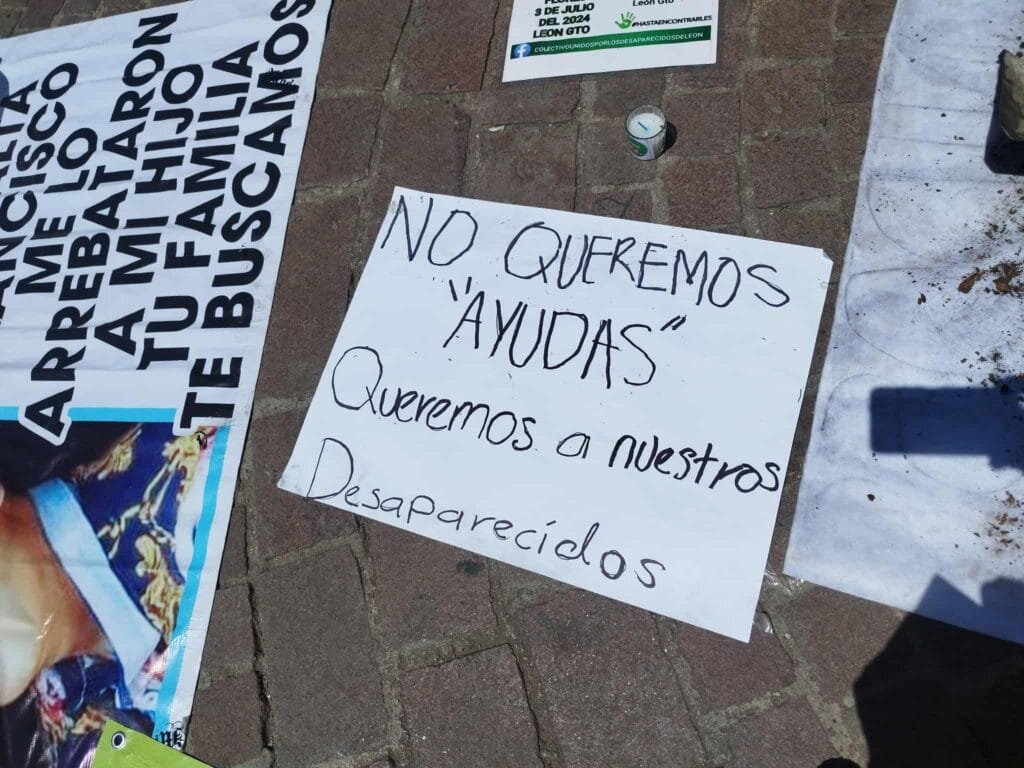 ANCISCO
ME LO
ARREBATARON
A MI HIJO
TU FAMILIA
TE BUSCAMOS
3 DE JULIO
DEL 2024
LEON GTO
Leon Gto
#HASTAENCONTRARLES
COLECTIVOUNIDOSPORLOSDESAPARECIDOSDELEON
NO QUEREMOS
"AYUDAS"
Queremos a nuestros
Desaparecidos